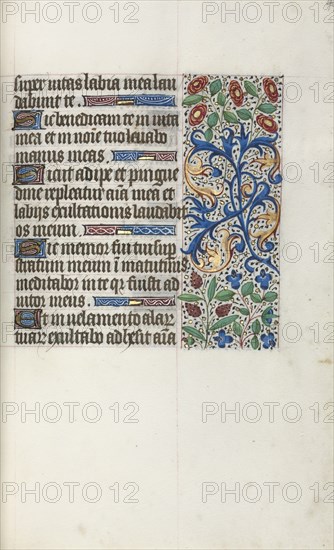 super vitas labia mea lau
dabunt te.
Sic benedicam te in vita
mea et in noīe tuo levabo
manus meas.
Sicut adipe et pingue
dine repleatur aīa mea et
labijs exultationis laudabit
os meum.
Sic memor fui tui sup
stratum meum ī matutinis
meditabor in te qr fuisti ad
iutor meus.
Et in velamento alar
tuar exultabo adhesit aīa